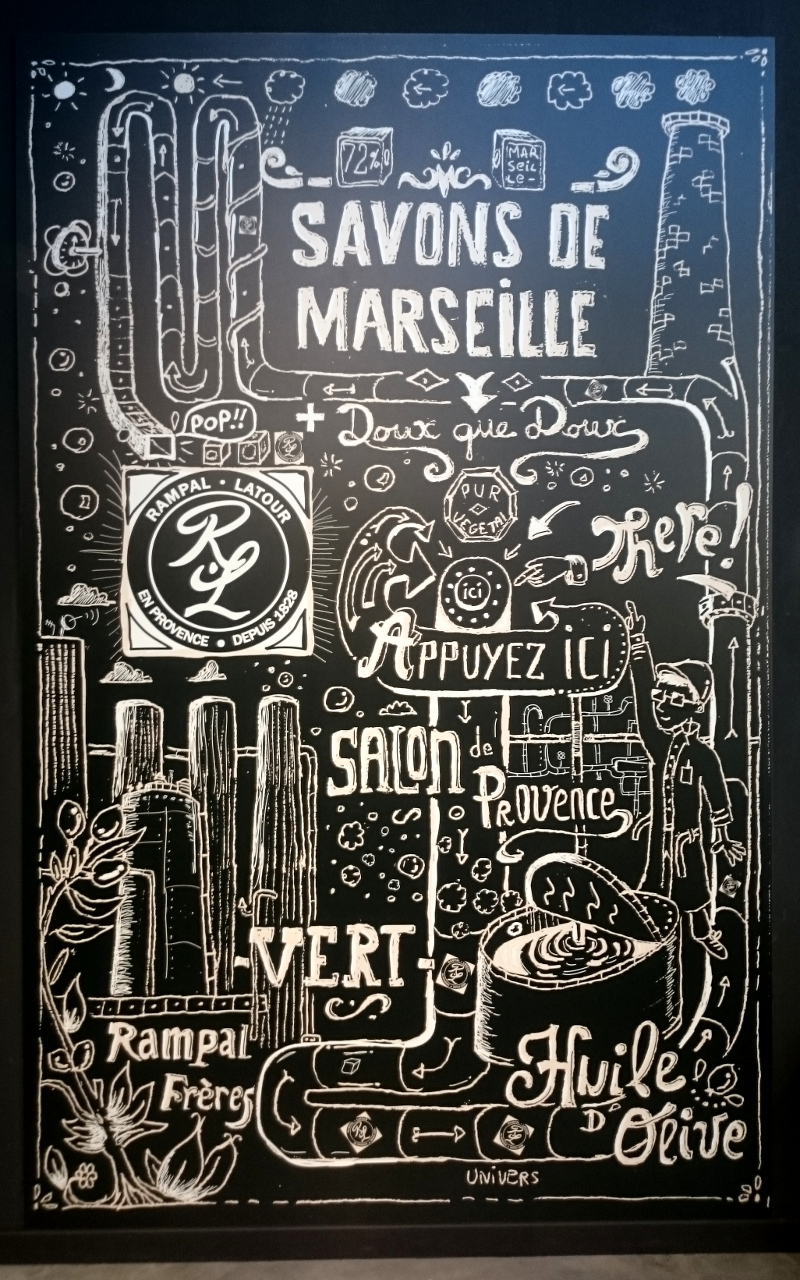 72%
MAR
SEIL
LE-
SAVONS DE
MARSEiLLE
POP!!
+ Doux que Doux
RAMPAL • LATOUR
RL
EN PROVENCE • DEPUIS 1828
PUR
VEGETAL
There!
ici
APPUYEZ ICI
SALON de
PROVENCE
-VERT-
Rampal
Frères
Huile
D'
Olive
UNIVERS